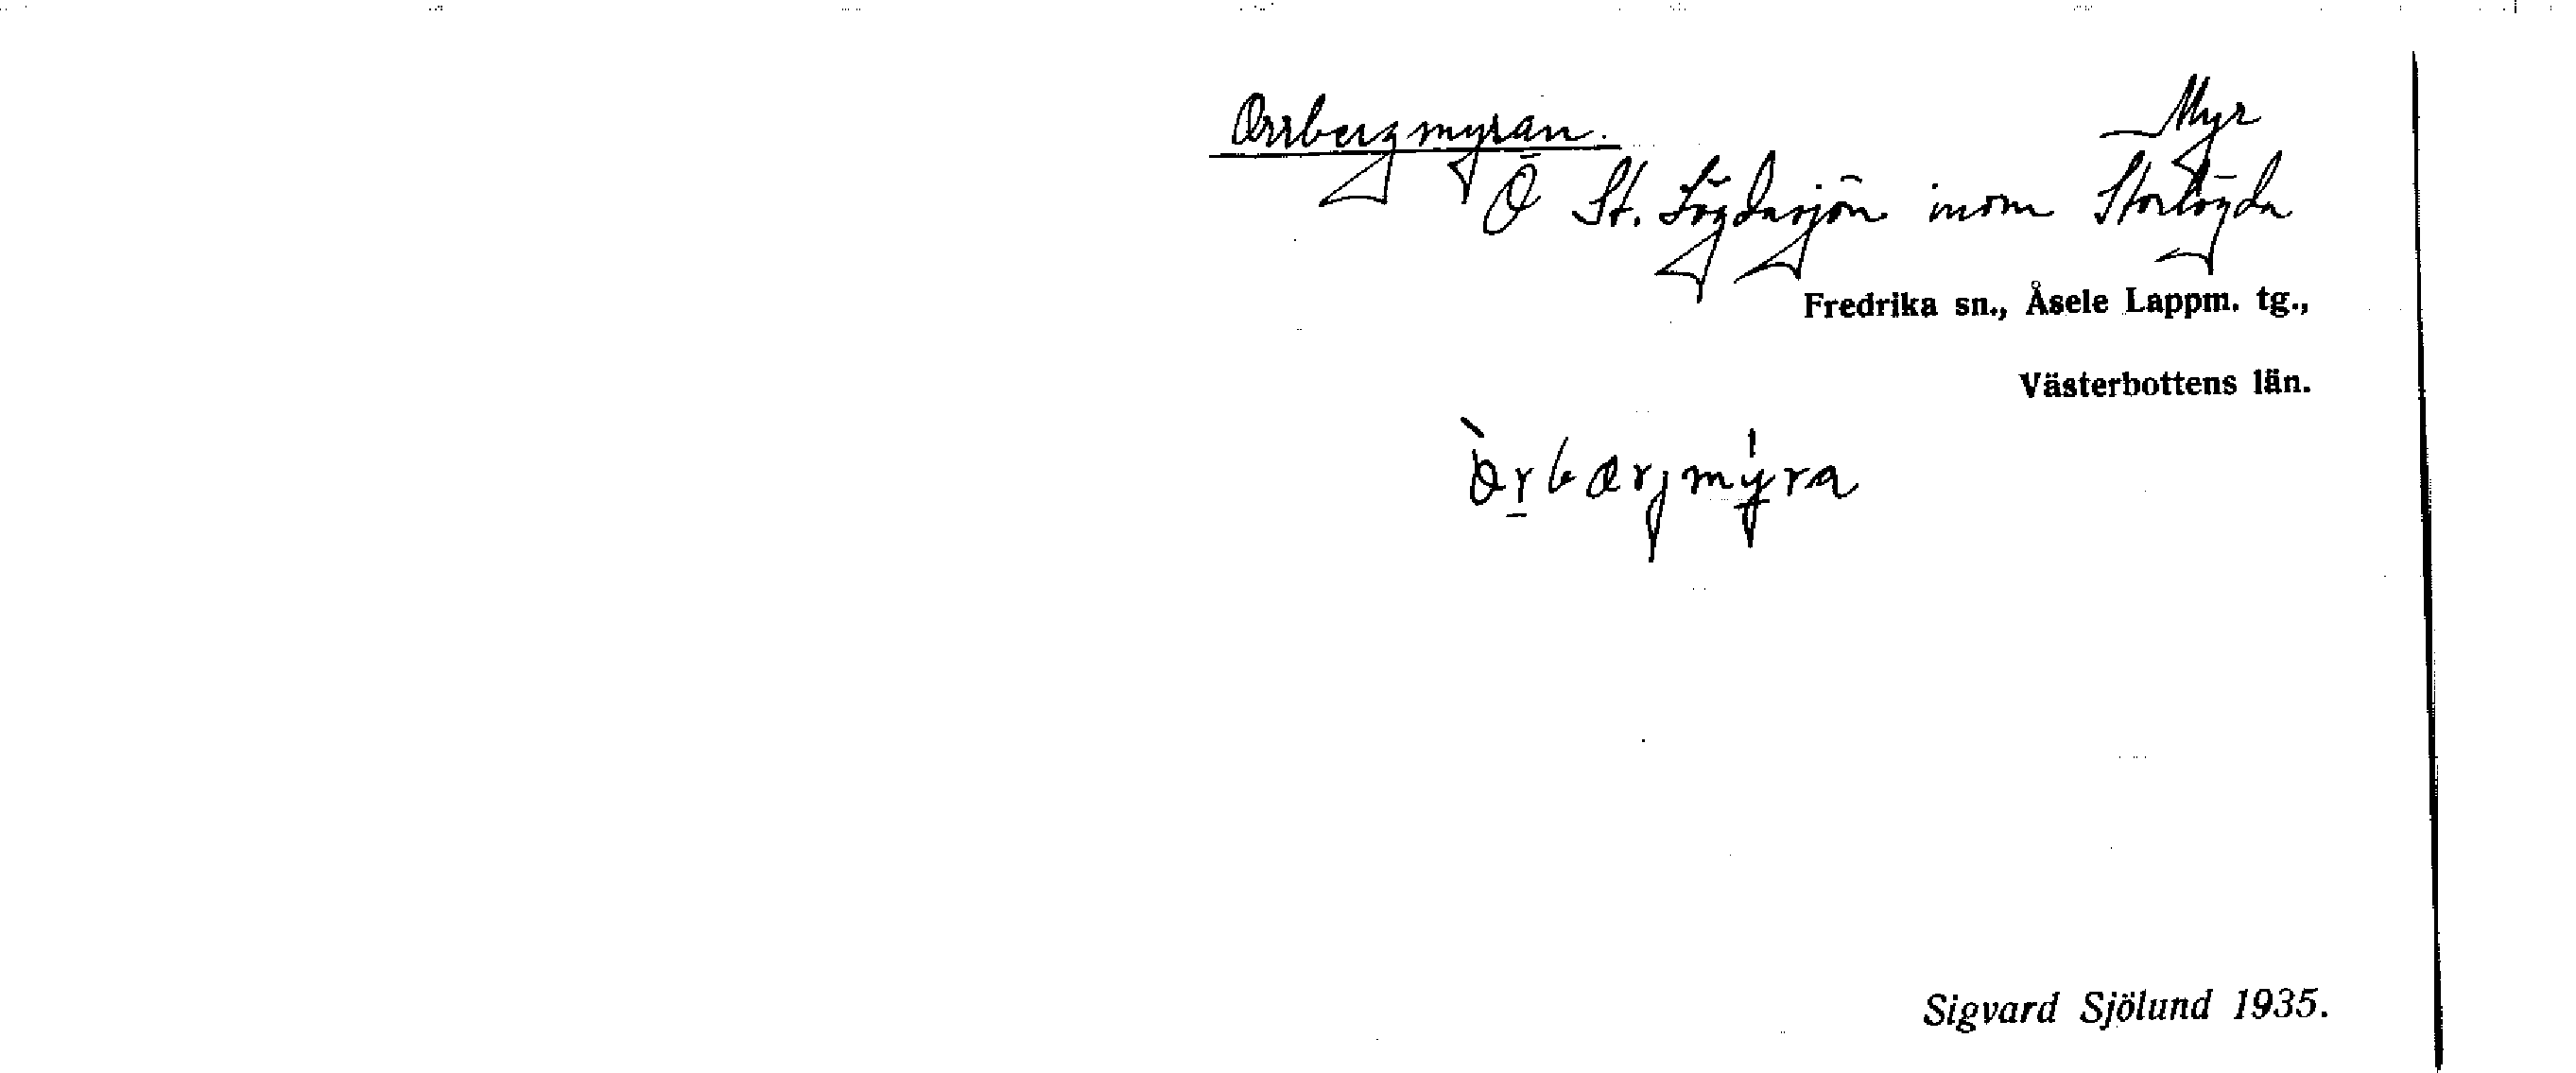 Orrbergmyran. Myr
Ö St. Lögdasjön inom Storlögda
Fredrika sn., Åsele Lappm. tg.,
Västerbottens län.
Sigvard Sjölund 1935.